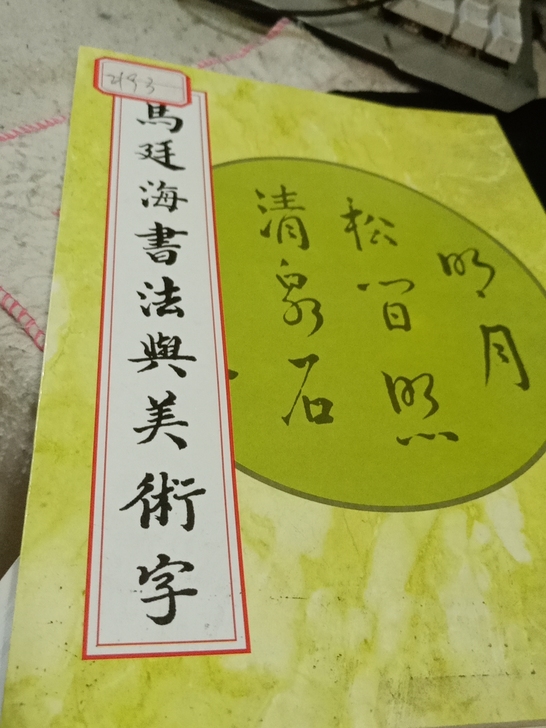 馬廷海書法與美術字
明月
松間照
清泉石